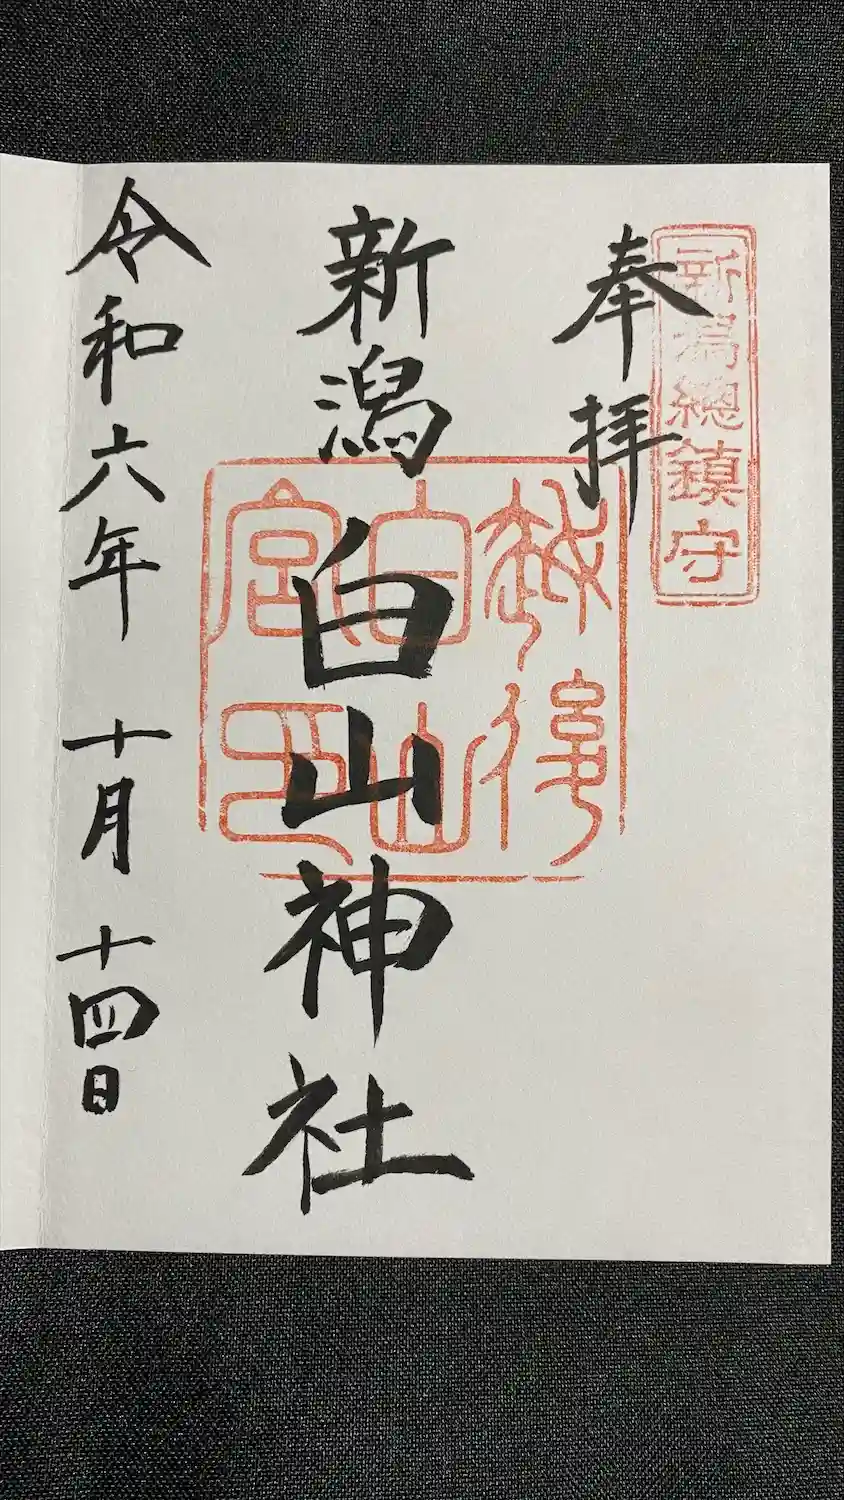 新潟總鎮守
奉拝
越後
白山
宮印
新潟白山神社
令和六年十月十四日